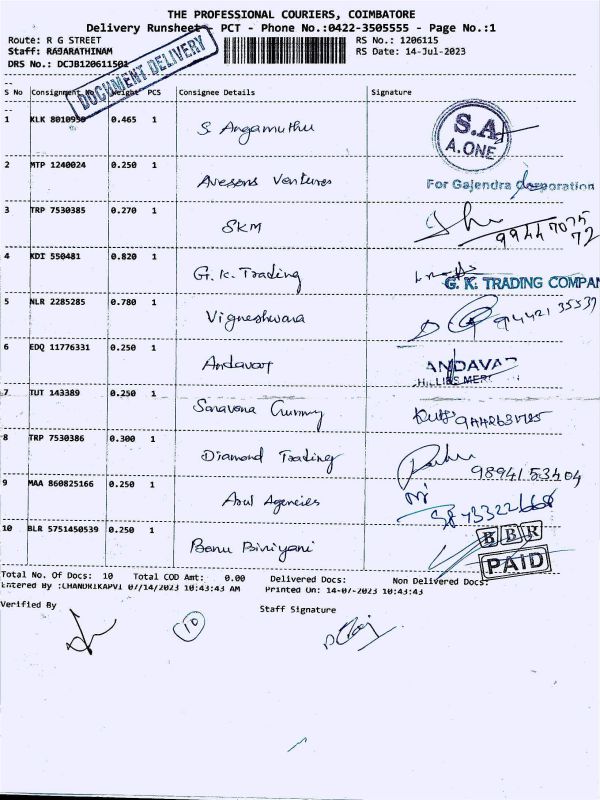 THE PROFESSIONAL COURIERS, COIMBATORE
Delivery Runsheet - PCT - Phone No.:0422-3505555 - Page No.:1
Route: R G STREET RS No.: 1206115
Staff: RAJARATHINAM RS Date: 14-Jul-2023
DRS No.: DCJB120611501
DOCUMENT DELIVERY
S No Consignment No Weight PCS Consignee Details Signature
1 KLK 8010950 0.465 1 S. Angamuthu S.A. A.ONE
2 MTP 1240024 0.250 1 Avesons Ventures For Gajendra Corporation
3 TRP 7530385 0.270 1 SKM 99447075
72
4 KDI 550481 0.820 1 G. K. Trading G. K. TRADING COMPAN
5 NLR 2285285 0.780 1 Vigneshwara 94421 35537
6 EDQ 11776331 0.250 1 Andavar ANDAVA
7 TUT 143389 0.250 1
8 TRP 7530386 0.300 1 Diamond Trading 9894153404
9 MAA 860825166 0.250 1 Arul Agencies
10 BLR 5751450539 0.250 1 BBR PAID
Total No. Of Docs: 10 Total COD Amt: 0.00 Delivered Docs: Non Delivered Docs:
Entered By :CHANDRIKAPVI 07/14/2023 10:43:43 AM Printed On: 14-07-2023 10:43:43
Verified By Staff Signature
10